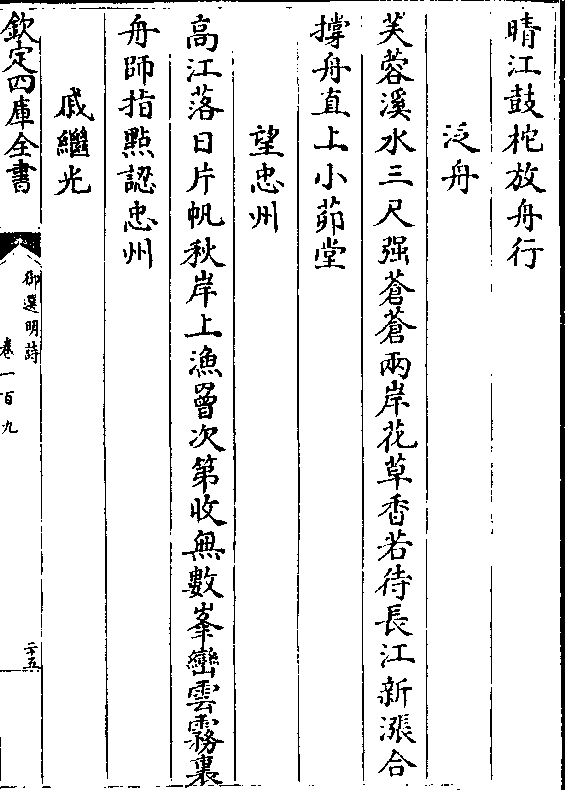 晴江鼓柁放舟行
泛舟
芙蓉溪水三尺强蒼蒼兩岸花草香若待長江新漲合
撐舟直上小茆堂
望忠州
高江落日片帆秋岸上漁罾次第收無數峯巒雲霧裏
舟師指點認忠州
戚繼光
欽定四庫全書
御選明詩
卷一百九
二十五